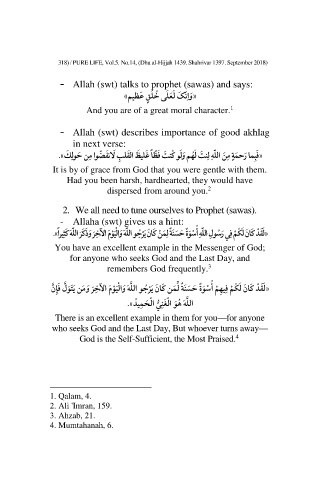 318) / PURE LIFE, Vol.5. No.14, (Dhu al-Hijjah 1439. Shahrivar 1397. September 2018)
- Allah (swt) talks to prophet (sawas) and says:
«وَإِنَّكَ لَعَلَى خُلُقٍ عَظِيمٍ»
And you are of a great moral character.1
- Allah (swt) describes importance of good akhlag
in next verse:
«فَبِما رَحمَةٍ مِنَ اللَّهِ لِنتَ لَهُم وَلَو كُنتَ فَظّاً غَليظَ القَلبِ لَانفَضّوا مِن حَولِكَ».
It is by of grace from God that you were gentle with them.
Had you been harsh, hardhearted, they would have
dispersed from around you.2
2. We all need to tune ourselves to Prophet (sawas).
- Allaha (swt) gives us a hint:
«لَقَدْ كَانَ لَكُمْ فِي رَسُولِ اللَّهِ أُسْوَةٌ حَسَنَةٌ لِمَنْ كَانَ يَرْجُو اللَّهَ وَالْيَوْمَ الْآخِرَ وَذَكَرَ اللَّهَ كَثِيراً».
You have an excellent example in the Messenger of God;
for anyone who seeks God and the Last Day, and
remembers God frequently.3
«لَقَدْ كَانَ لَكُمْ فِيهِمْ أُسْوَةٌ حَسَنَةٌ لِّمَن كَانَ يَرْجُو اللَّهَ وَالْيَوْمَ الْآخِرَ وَمَن يَتَوَلَّ فَإِنَّ
اللَّهَ هُوَ الْغَنِيُّ الْحَمِيدُ».
There is an excellent example in them for you—for anyone
who seeks God and the Last Day, But whoever turns away—
God is the Self-Sufficient, the Most Praised.4
1. Qalam, 4.
2. Ali 'Imran, 159.
3. Ahzab, 21.
4. Mumtahanah, 6.